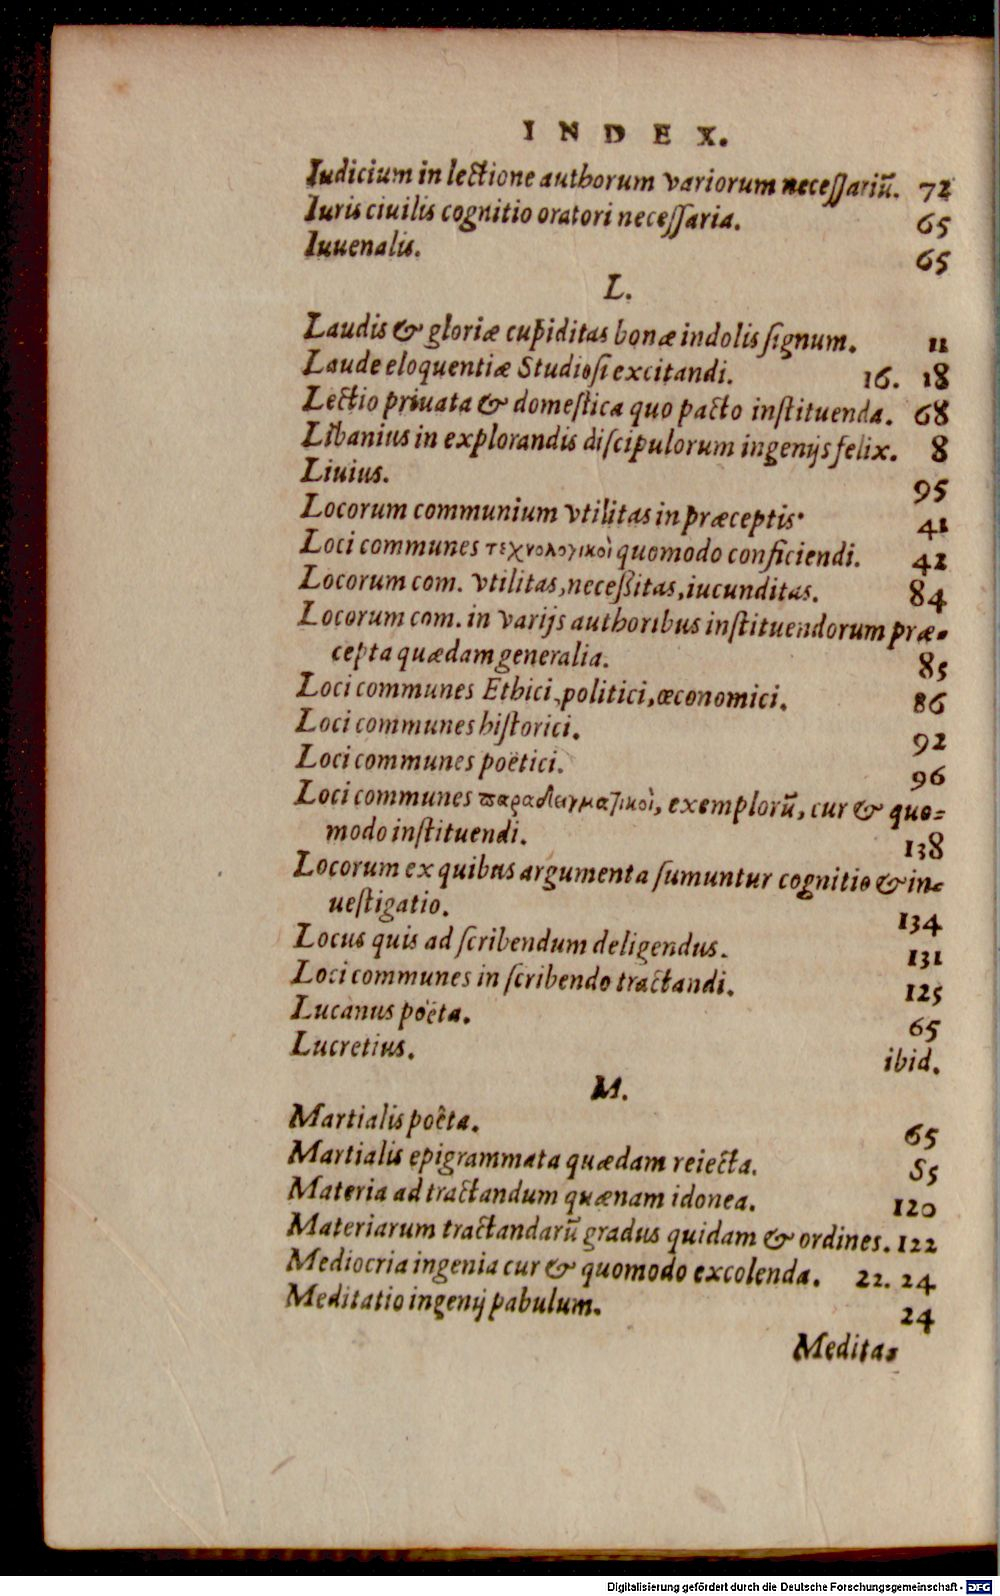 INDEX.
Iudicium in lectione authorum variorum necessariũ. 72
Iuris ciuilis cognitio oratori necessaria. 65
Iuuenalis. 65
L.
Laudis & gloriæ cupiditas bonæ indolis signum. 11
Laude eloquentiæ Studiosi excitandi. 16. 18
Lectio priuata & domestica quo pacto instituenda. 68
Libanius in explorandis discipulorum ingenijs felix. 8
Liuius. 95
Locorum communium vtilitas in præceptis. 41
Loci communes τεχνολογικοὶ quomodo conficiendi. 42
Locorum com. vtilitas, necessitas, iucunditas. 84
Locorum com. in varijs authoribus instituendorum præ-
cepta quædam generalia. 85
Loci communes Ethici, politici, œconomici. 86
Loci communes historici. 92
Loci communes poëtici. 96
Loci communes παραδειγματικοὶ, exemplorũ, cur & quo-
modo instituendi. 138
Locorum ex quibus argumenta sumuntur cognitio & in-
uestigatio. 134
Locus quis ad scribendum deligendus. 131
Loci communes in scribendo tractandi. 125
Lucanus poëta. 65
Lucretius. ibid.
M.
Martialis poëta. 65
Martialis epigrammata quædam reiecta. 55
Materia ad tractandum quænam idonea. 120
Materiarum tractandarũ gradus quidam & ordines. 122
Mediocria ingenia cur & quomodo excolenda. 22. 24
Meditatio ingenij pabulum. 24
Medita-
Digitalisierung gefördert durch die Deutsche Forschungsgemeinschaft - DFG